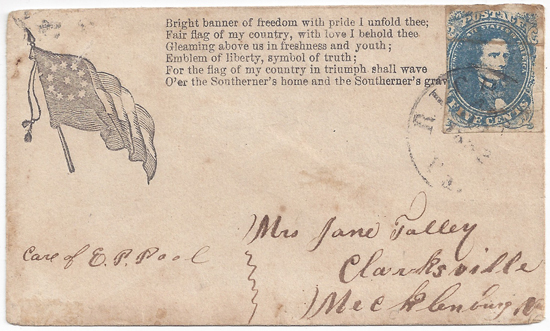 Bright banner of freedom with pride I unfold thee;
Fair flag of my country, with love I behold thee
Gleaming above us in freshness and youth;
Emblem of liberty, symbol of truth;
For the flag of my country in triumph shall wave
O'er the Southerner's home and the Southerner's grav
POSTAGE
FIVE CENTS
Mrs Jane Talley
Care of E. P. Pool
Clarksville
Mecklenburg, Va